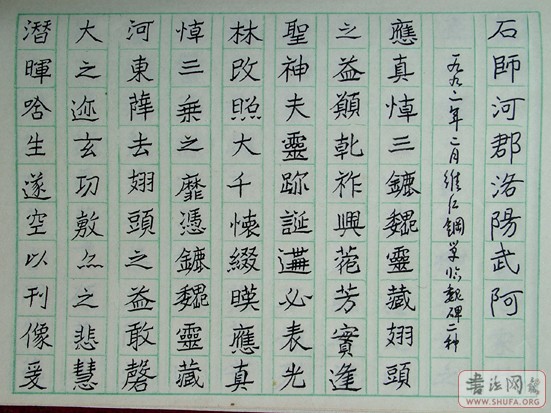 石師河郡洛陽武阿
一九九二年二月維仁鋼筆临魏碑二种
應真悼三鑣魏靈藏翅頭
之益顛乹祚興菀芳賓逢
聖神夫靈跡誕遘必表光
林改照大千懷綴暎應真
悼三乗之靡憑鑣魏靈藏
河東薛去翅頭之益敢磬
大之迹玄功敷之悲慧
潛暉啥生遂空以刊像爰
書法网报
WWW.SHUFA.ORG